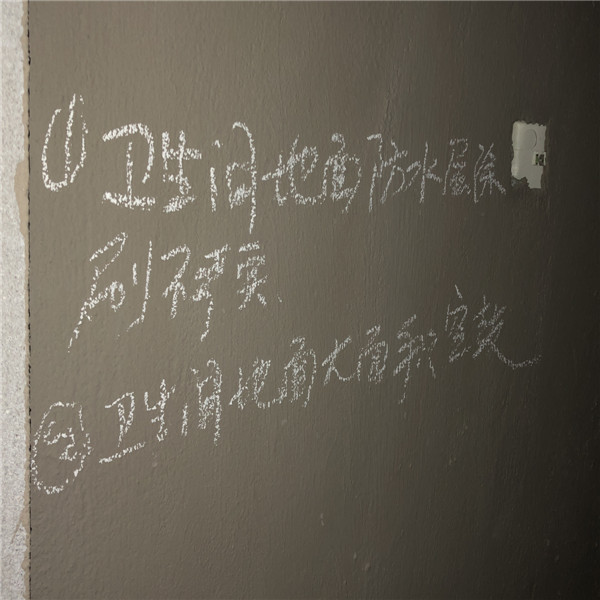 ① 卫生间地面防水层涂
刷不严实
② 卫生间地面大面积空鼓